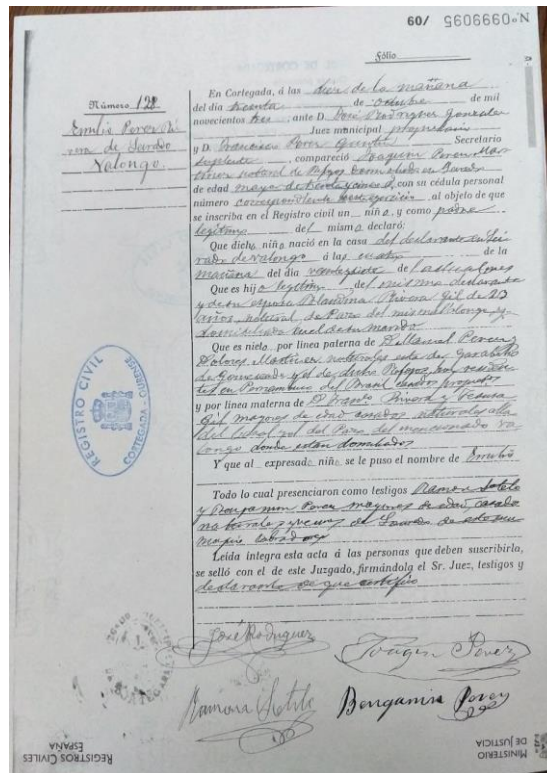 Nº 0999095 /09
Fólio
Número 128
Emilio Perez Ri-
vera de Lavado
Valongo.
En Cortegada, á las diez de la mañana
del día treinta de Octubre de mil
novecientos tres ante D. José Rodriguez Gonzalez
Juez municipal propietario
y D. Francisco Perez Secretario
suplente, compareció Joaquin Perez Mar
tinez natural de domiciliado en
de edad mayor de treinta y cinco, con su cédula personal
número correspondiente, al objeto de que
se inscriba en el Registro civil un niño, y como padre
legítimo del mismo declaró:
Que dicho niño nació en la casa del declarante en
de Valongo á las cuatro de la
mañana del día veintisiete del actual mes
Que es hijo legítimo del mismo declarante
y de su esposa Blandina Rivera Gil de 23
años, natural de Pazo del mismo Valongo, y
domiciliada en el de su marido
Que es nieto por línea paterna de Manuel Perez y
Dolores Martinez naturales esta de Garabelos
de y el de dicho hoy residen
tes en Pernambuco del Brasil
y por línea materna de Rivera y
Gil mayores de edad casados naturales ella
del y el del Pazo del mencionado Va
longo donde están domiciliados
Y que al expresado niño se le puso el nombre de Emilio
Todo lo cual presenciaron como testigos Ramon Sotelo
y Benjamin Perez mayores de edad, casados
naturales y vecinos de de este tér
mino labradores
Leída íntegra esta acta á las personas que deben suscribirla,
se selló con el de este Juzgado, firmándola el Sr. Juez, testigos y
declarante de que certifico
José Rodriguez
Joaqin Perez
Ramon Sotelo
Bengamin Perez
REGISTRO CIVIL
CORTEGADA - OURENSE
REGISTROS CIVILES
ESPAÑA
MINISTERIO
DE JUSTICIA